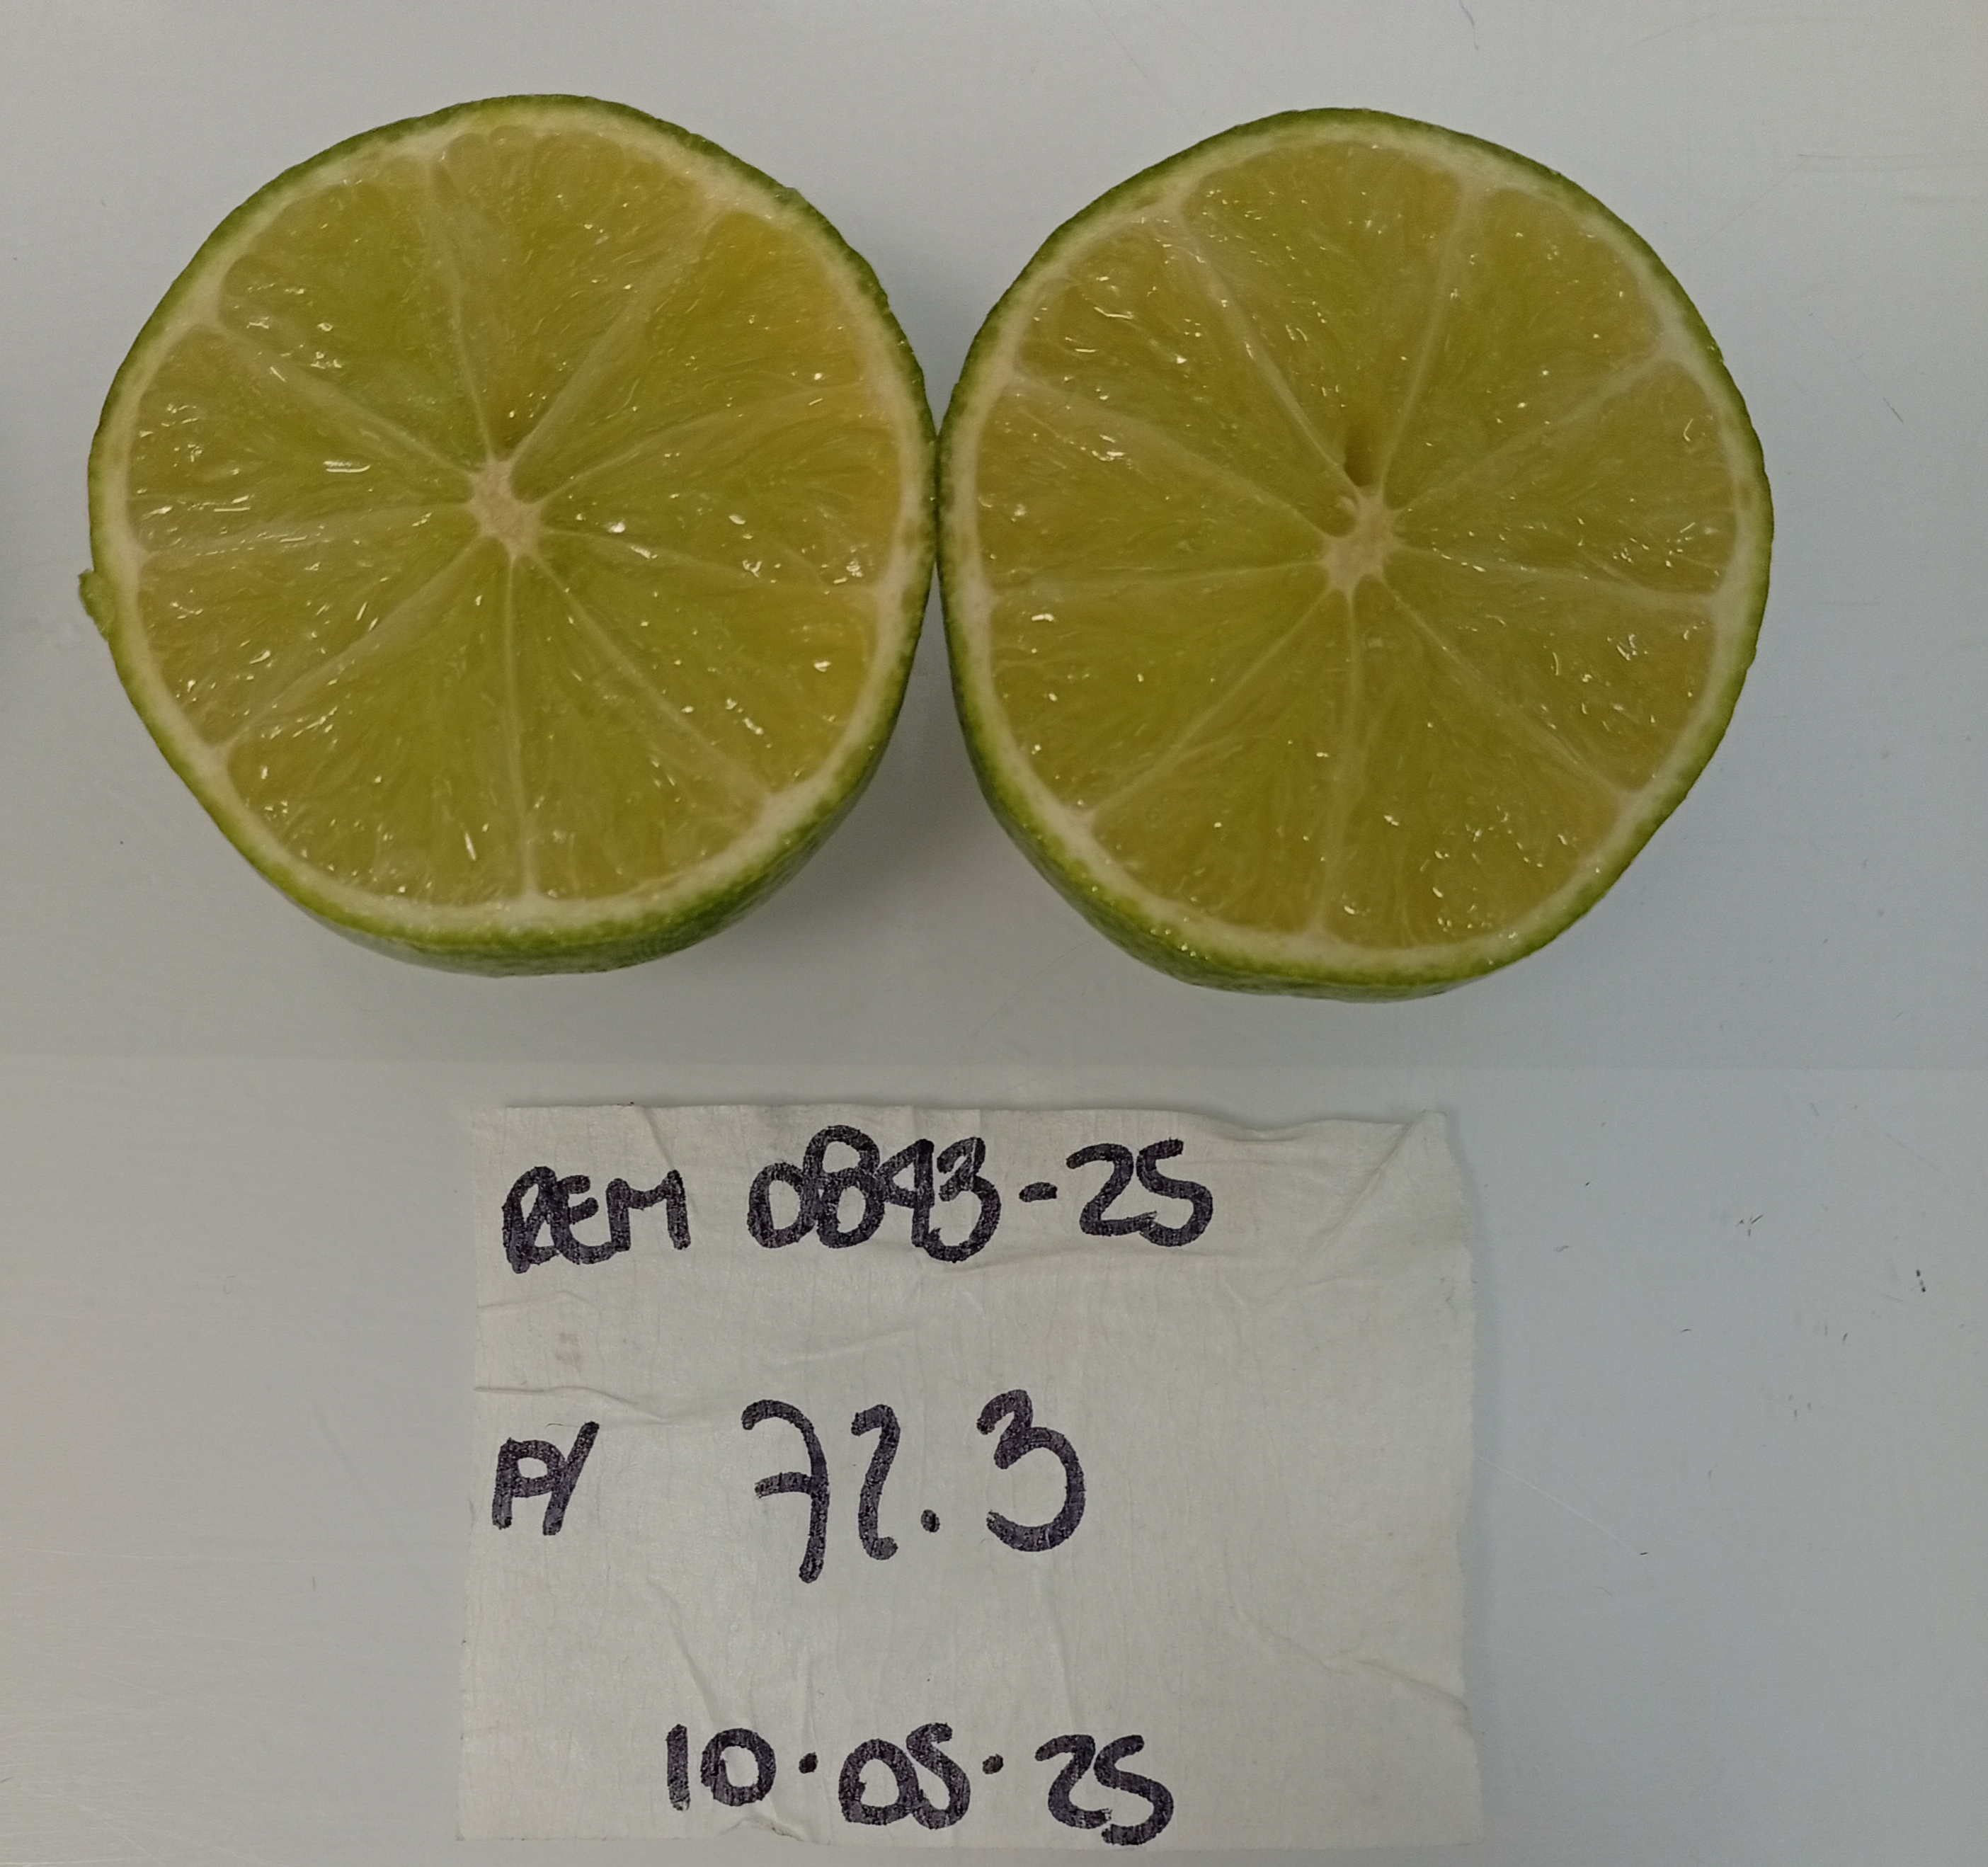 REM 0843-25
P/ 72.3
10.05.25